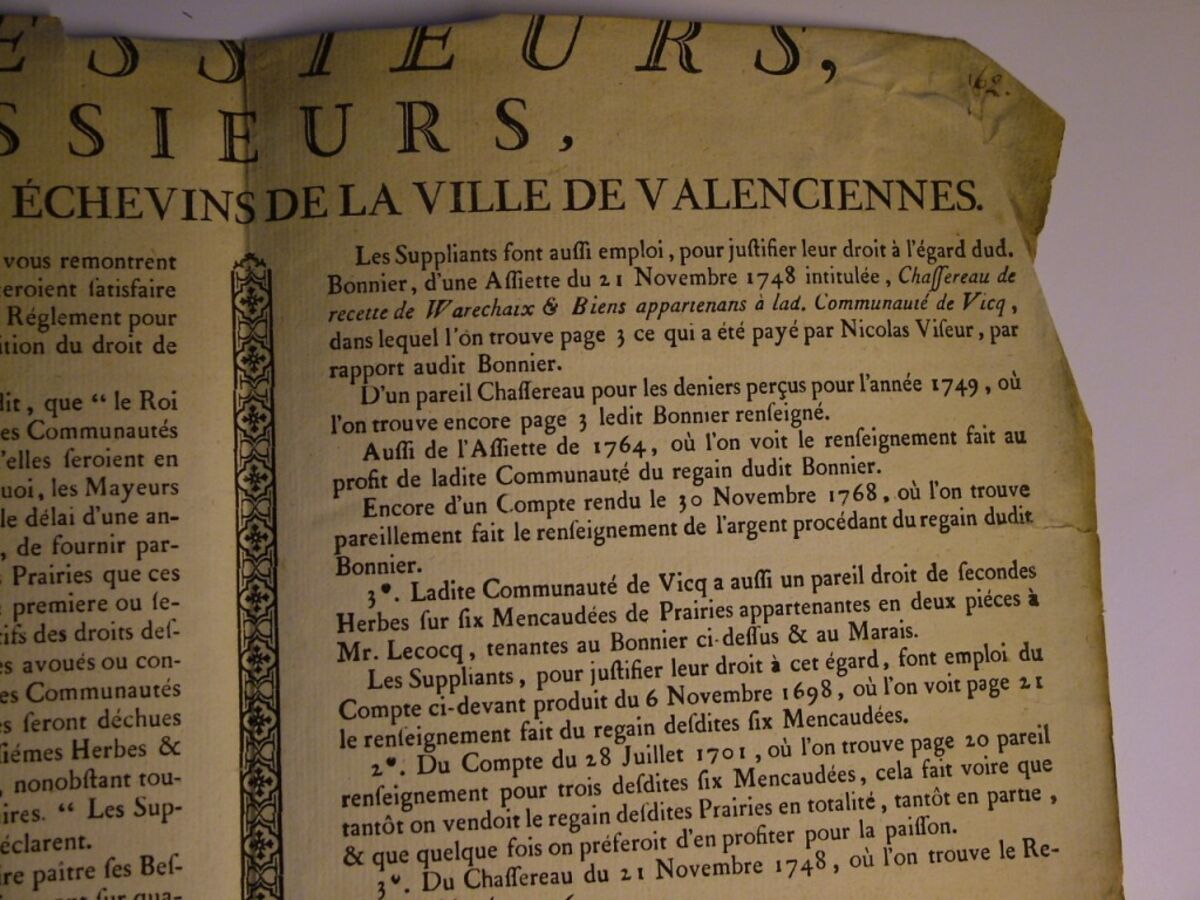 ESSIEURS,
SSIEURS,
ÉCHEVINS DE LA VILLE DE VALENCIENNES.
62.
vous remontrent
eroient ſatisfaire
Réglement pour
ition du droit de
dit, que “ le Roi
es Communautés
'elles ſeroient en
uoi, les Mayeurs
le délai d'une an-
, de fournir par-
Prairies que ces
premiere ou ſe-
tifs des droits deſ-
es avoués ou con-
es Communautés
s ſeront déchues
ſiémes Herbes &
, nonobſtant tou-
ires. “ Les Sup-
éclarent.
ire paître ſes Beſ-
ent ſur qua-
Les Suppliants ſont auſſi emploi, pour juſtifier leur droit à l'égard dud.
Bonnier, d'une Aſſiette du 21 Novembre 1748 intitulée, Chaſſereau de
recette de Warechaix & Biens appartenans à lad. Communauté de Vicq,
dans lequel l'ôn trouve page 3 ce qui a été payé par Nicolas Viſeur, par
rapport audit Bonnier.
D'un pareil Chaſſereau pour les deniers perçus pour l'année 1749, où
l'on trouve encore page 3 ledit Bonnier renſeigné.
Auſſi de l'Aſſiette de 1764, où l'on voit le renſeignement fait au
profit de ladite Communauté du regain dudit Bonnier.
Encore d'un Compte rendu le 30 Novembre 1768, où l'on trouve
pareillement fait le renſeignement de l'argent procédant du regain dudit
Bonnier.
3°. Ladite Communauté de Vicq a auſſi un pareil droit de ſecondes
Herbes ſur ſix Mencaudées de Prairies appartenantes en deux piéces à
Mr. Lecocq, tenantes au Bonnier ci-deſſus & au Marais.
Les Suppliants, pour juſtifier leur droit à cet égard, font emploi du
Compte ci-devant produit du 6 Novembre 1698, où l'on voit page 21
le renſeignement fait du regain deſdites ſix Mencaudées.
2°. Du Compte du 28 Juillet 1701, où l'on trouve page 20 pareil
renſeignement pour trois deſdites ſix Mencaudées, cela fait voire que
tantôt on vendoit le regain deſdites Prairies en totalité, tantôt en partie,
& que quelque fois on préferoit d'en profiter pour la paiſſon.
3°. Du Chaſſereau du 21 Novembre 1748, où l'on trouve le Re-